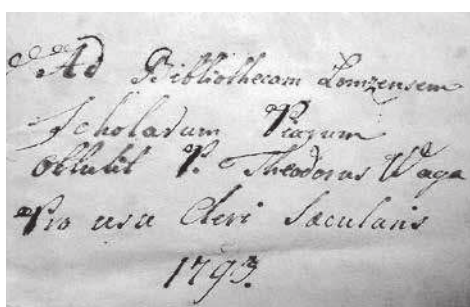 Ad Bibliothecam Lomzensem
Scholarum Piarum
obtulit P. Theodorus Waga
Pro usu Cleri Sæcularis
1793.